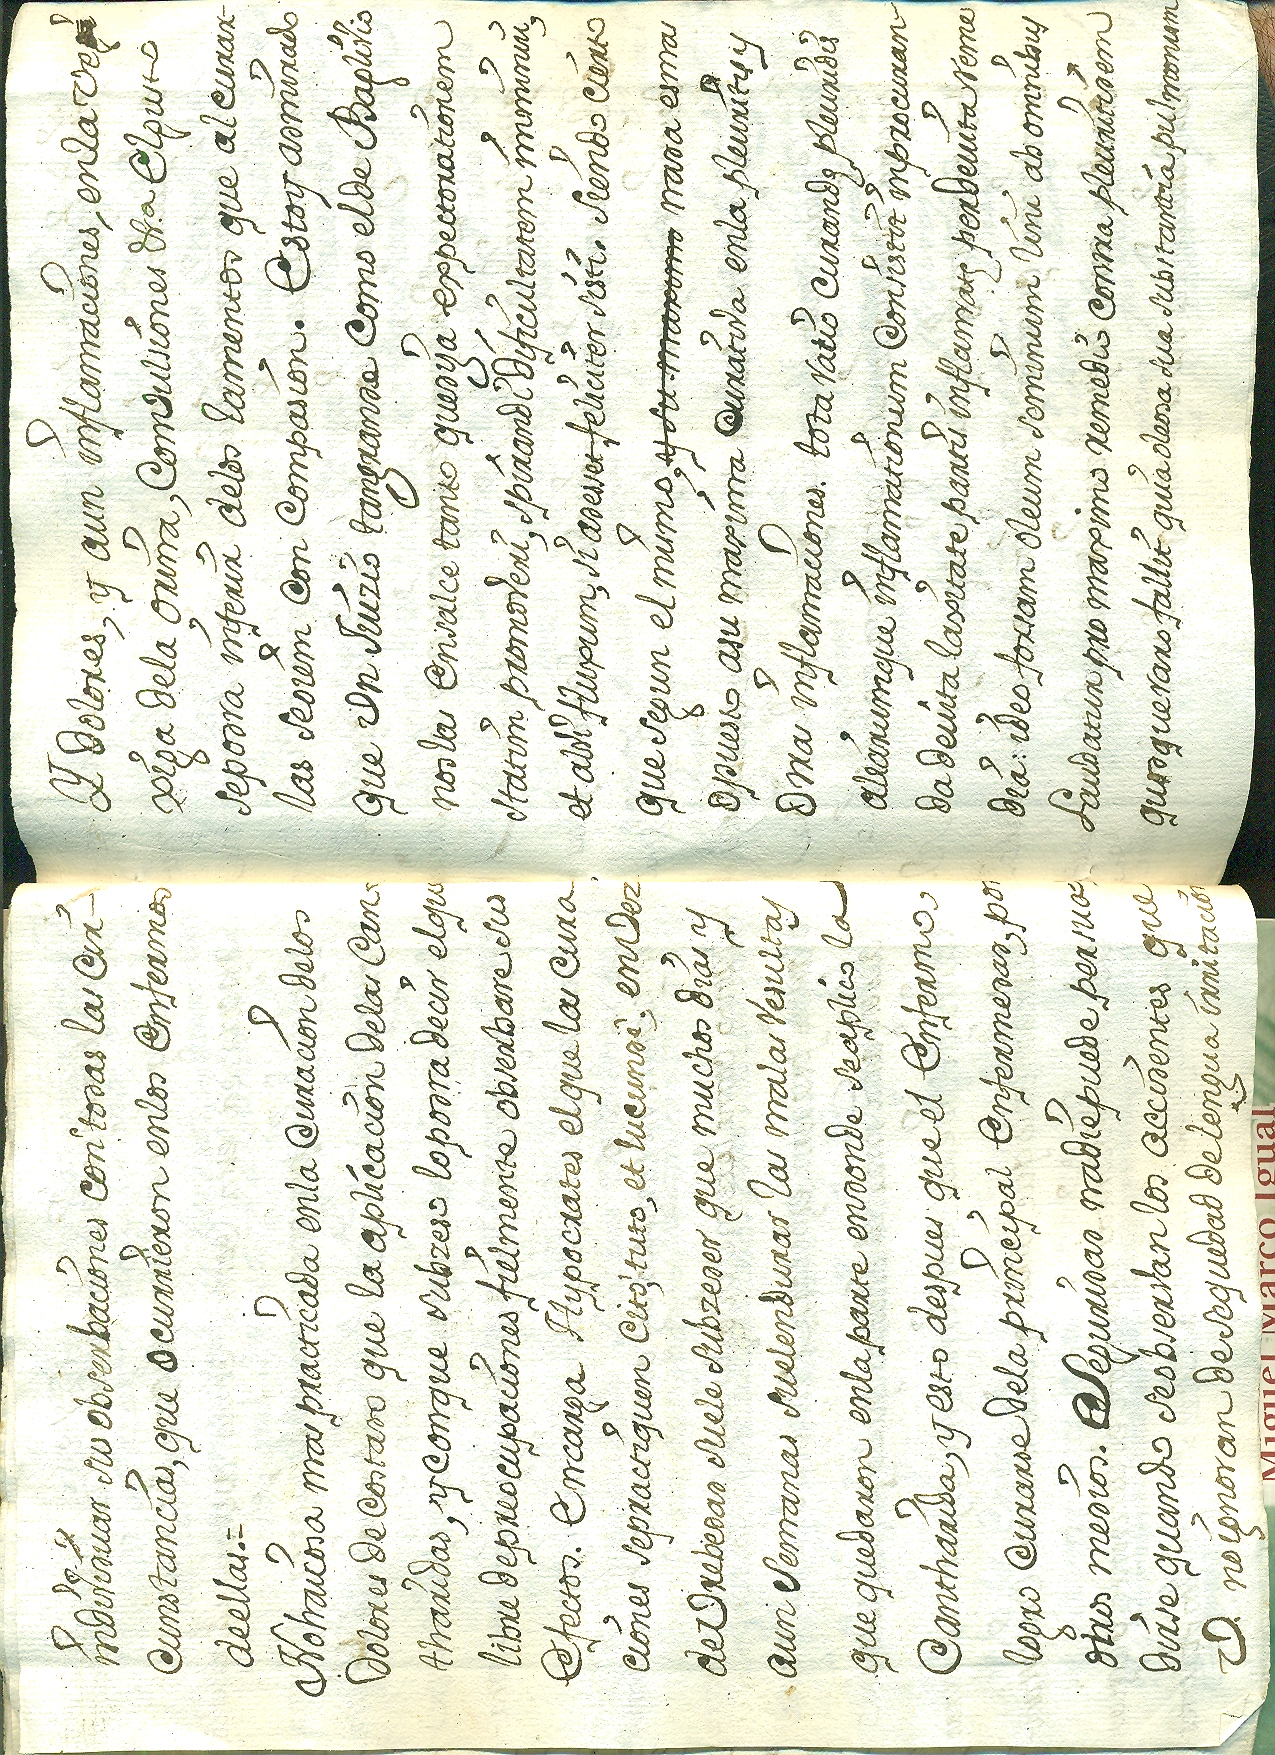 individuar sus obserbaciones con todas las cir-
cunstancias, que ocurrieron en los Enfermos
de ellas.=
No hai cosa mas practicada en la Curacion de los
Dolores de costado que la aplicacion de las Can-
tharidas, y con que subzeso lo podra decir el qu
libre de preocupaciones fielmente obserbare sus
Efectos. Encarga Hypocrates el que las cura
ciones se practiquen Cito, tuto, et iucunde, en vez
de Vrebedad suele subzeder que muchos dias y
aun semanas suelen durar las malas resultas
que quedaron en la parte en donde se aplico la
Cantharida, y esto despues que el Enfermo
logro Curarse de la principal Enfermedad, por
otros medios. Seguridad nadie puede persua-
dirse quando se obserban los accidentes que
V. no ignoran de sequedad de lengua irritacion
Y Dolores, y aun inflamaciones, en la vegi
xiga de la orina, Convulsiones dha Elpunto
se podra inferir de los lamentos que al curar-
las se oien con Compasion. Estoy admirado
que Vn Juizio tan grande como el de Baglivio
nos la Ensalce tanto quoniya expectorationem
statim promoveri, spirandi dificultatem imminui,
et absistturum, si adesset feliciter sisti. Siendo cierto
que segun el mismo, nada es mas
Opuesto a su maxima Curativa en la pleuritis y
Dmas inflamaciones. tota ratio curandi pleuridis
aliarumque inflamationum Consistit in procuran
da debita laxitate partis inflamate perdebita reme
dia: ideo forsam oleum seminum lini ab omnibus
Laudatur pro maximo remedio contra pleuritidem
quinquerano fallit quia oleosa sua subitantia pulmonum
Miguel Marco Igual